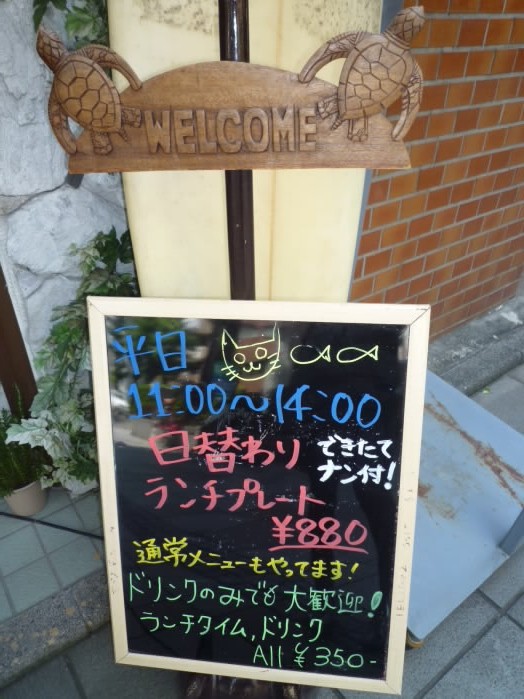 WELCOME
平日
11:00〜14:00
日替わり
できたて
ナン付!
ランチプレート
¥880
通常メニューもやってます!
ドリンクのみでも大歓迎!
ランチタイム,ドリンク
All ¥350-